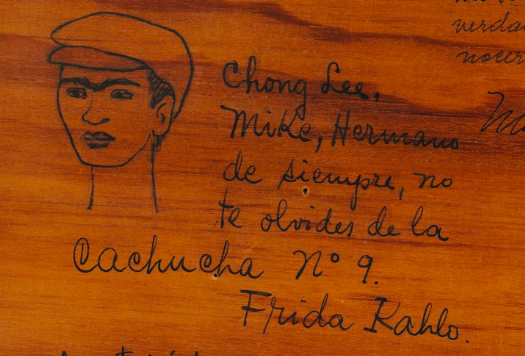 verda
Chong Lee,
Mike, Hermano
de siempre, no
te olvides de la
Cachucha Nº 9.
Frida Kahlo.